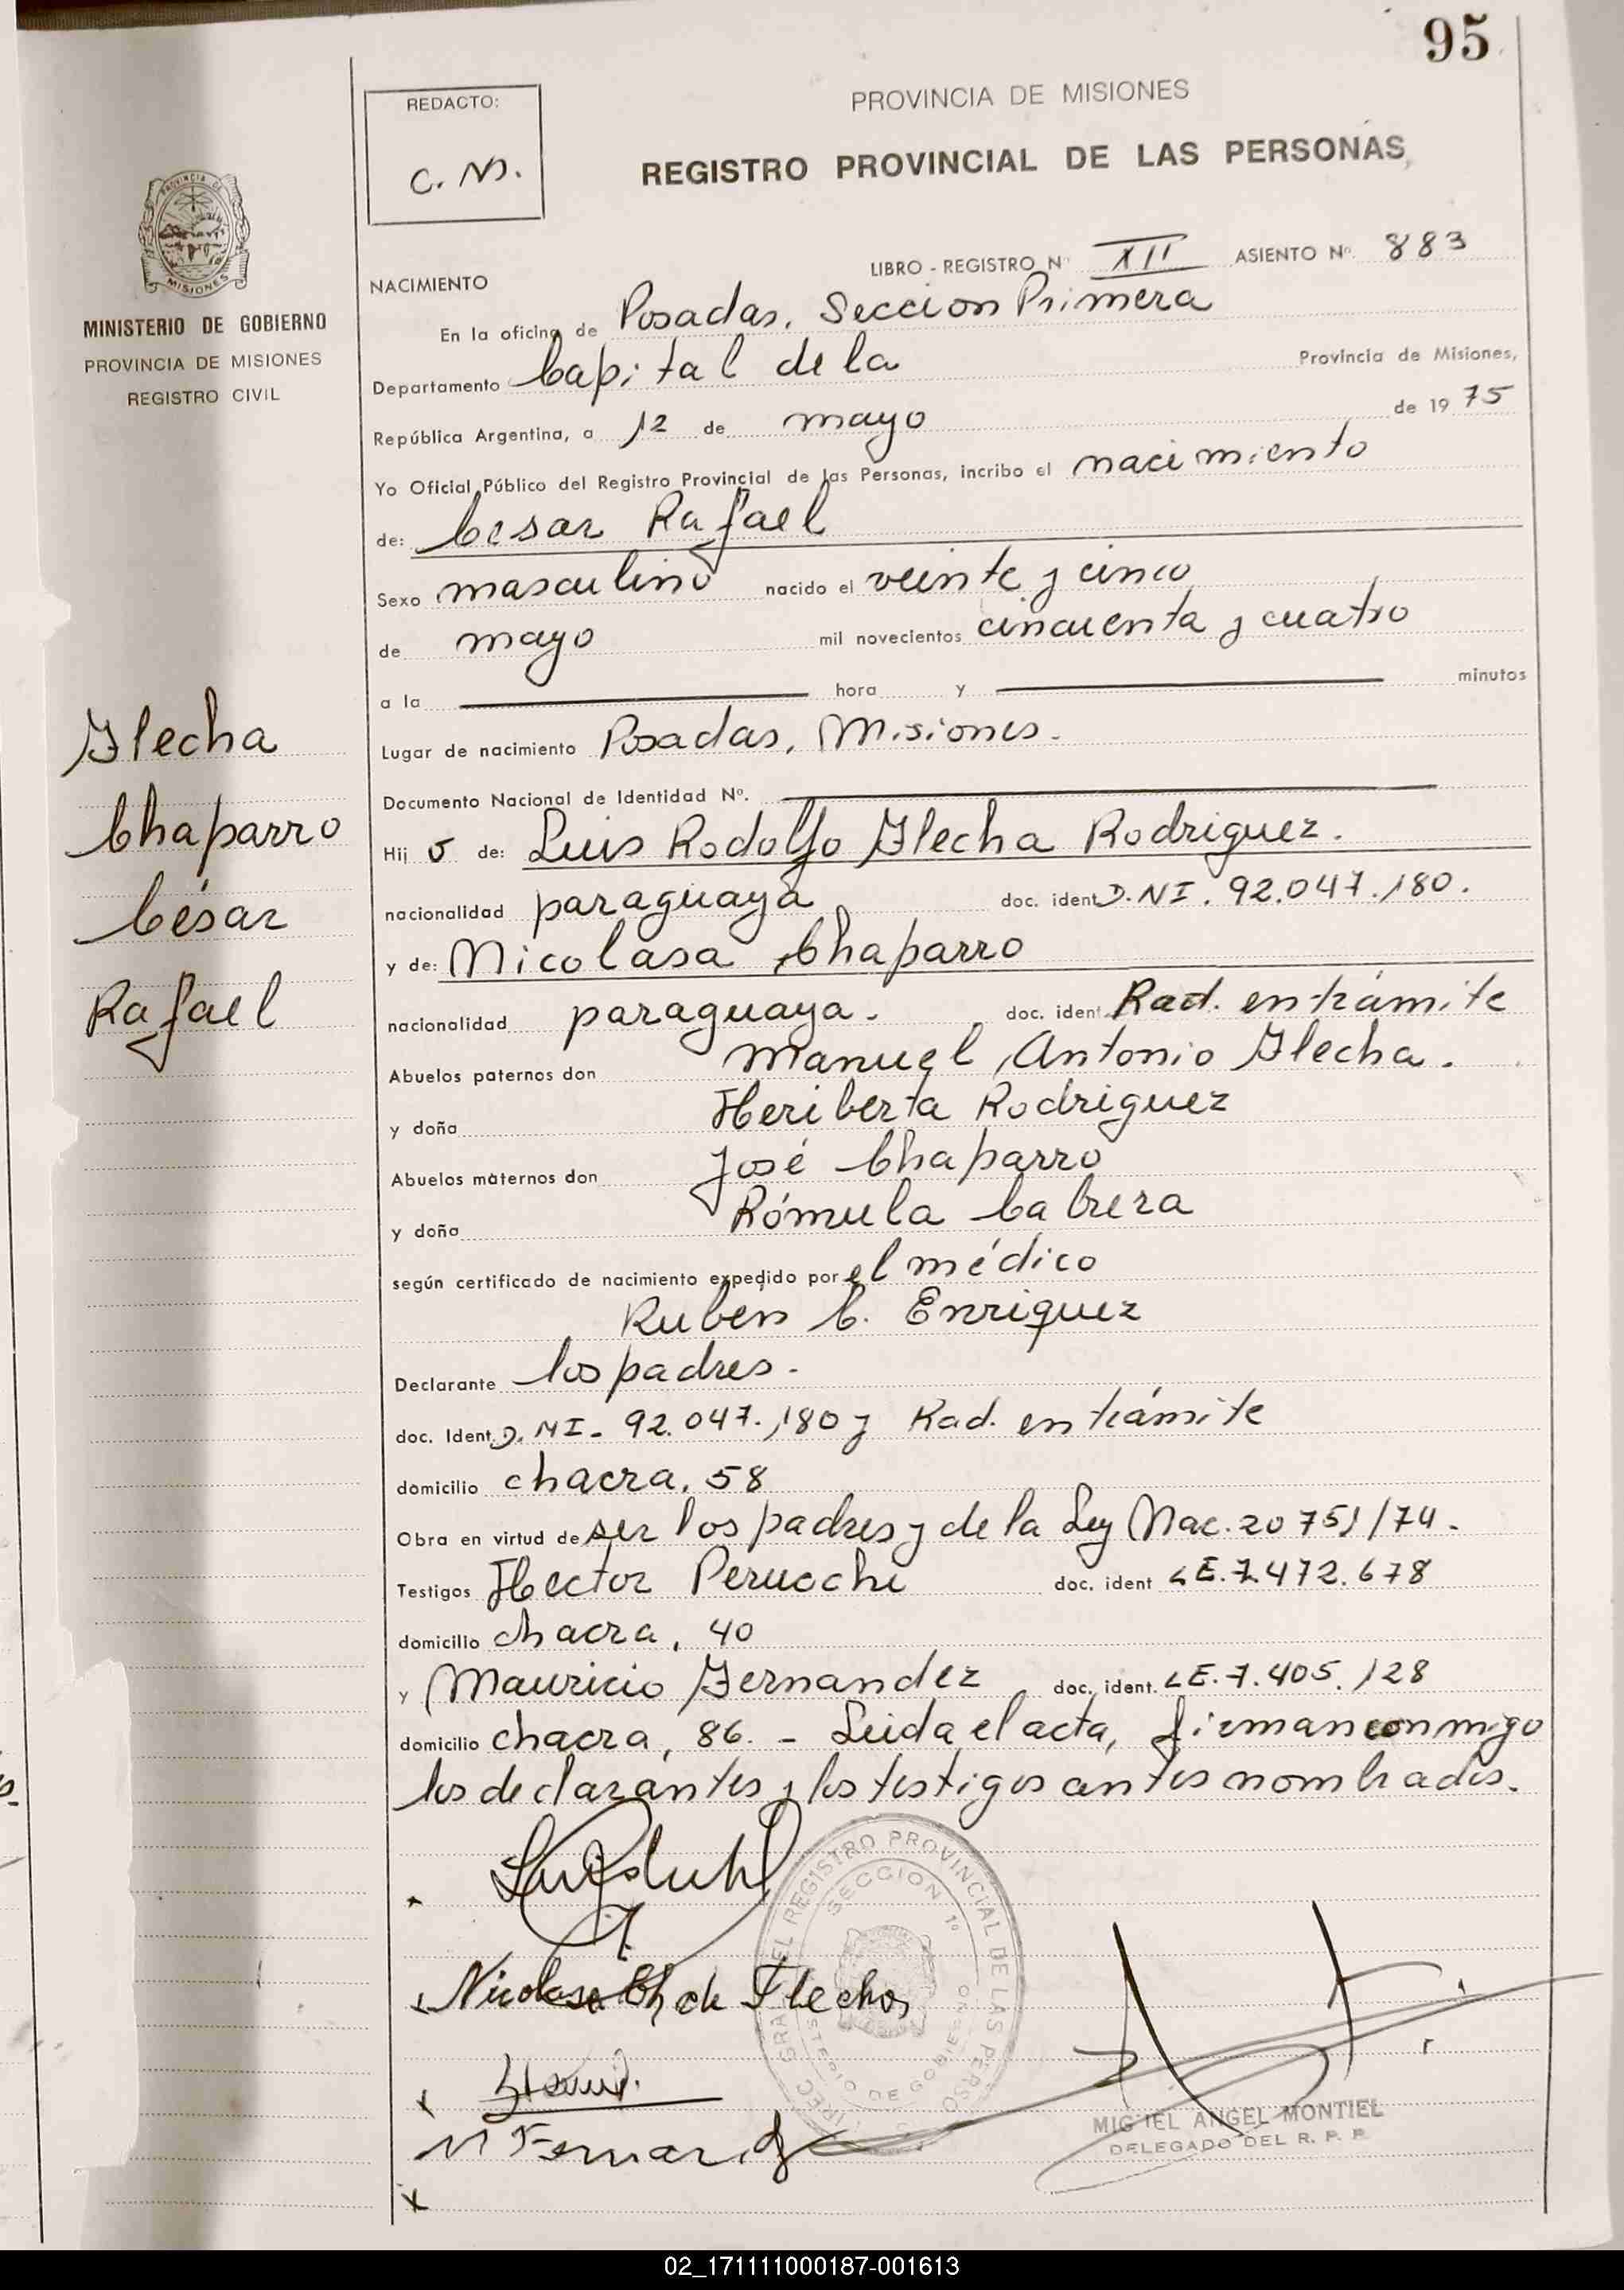 95
PROVINCIA DE MISIONES
REDACTO:
C. M.
REGISTRO PROVINCIAL DE LAS PERSONAS
LIBRO - REGISTRO Nº XII ASIENTO Nº 883
PROVINCIA DE
MISIONES
MINISTERIO DE GOBIERNO
PROVINCIA DE MISIONES
REGISTRO CIVIL
Flecha
Chaparro
César
Rafael
NACIMIENTO
En la oficina de Posadas, Seccion Primera
Departamento Capital de la Provincia de Misiones,
República Argentina, a 12 de mayo de 1975
Yo Oficial Público del Registro Provincial de las Personas, incribo el nacimiento
de: Cesar Rafael
Sexo masculino nacido el veinte y cinco
de mayo mil novecientos cincuenta y cuatro
a la hora y minutos
Lugar de nacimiento Posadas, Misiones.
Documento Nacional de Identidad Nº.
Hij o de: Luis Rodolfo Flecha Rodriguez.
nacionalidad paraguaya doc. ident D.NI. 92.047.180.
y de: Nicolasa Chaparro
nacionalidad paraguaya. doc. ident. Rad. en trámite
Abuelos paternos don Manuel Antonio Flecha.
y doña Heriberta Rodriguez
Abuelos maternos don José Chaparro
y doña Rómula Cabrera
según certificado de nacimiento expedido por el médico
Ruben C. Enriquez
Declarante los padres.
doc. Ident. D.NI. 92.047.180 y Rad. en trámite
domicilio chacra, 58
Obra en virtud de ser los padres y de la Ley Nac. 20751/74.
Testigos Hector Perucchi doc. ident LE.7.472.678
domicilio chacra, 40
y Mauricio Fernandez doc. ident. LE.7.405.128
domicilio chacra, 86. - Leida el acta, firman conmigo
los declarantes y los testigos antes nombrados.
REGISTRO PROVINCIAL DE LAS PERSONAS
SECCION 1º
MINISTERIO DE GOBIERNO
x Nicolasa Ch de Flecha
x
M Fernandez
x
MIGUEL ANGEL MONTIEL
DELEGADO DEL R. P. P.
02_171111000187-001613